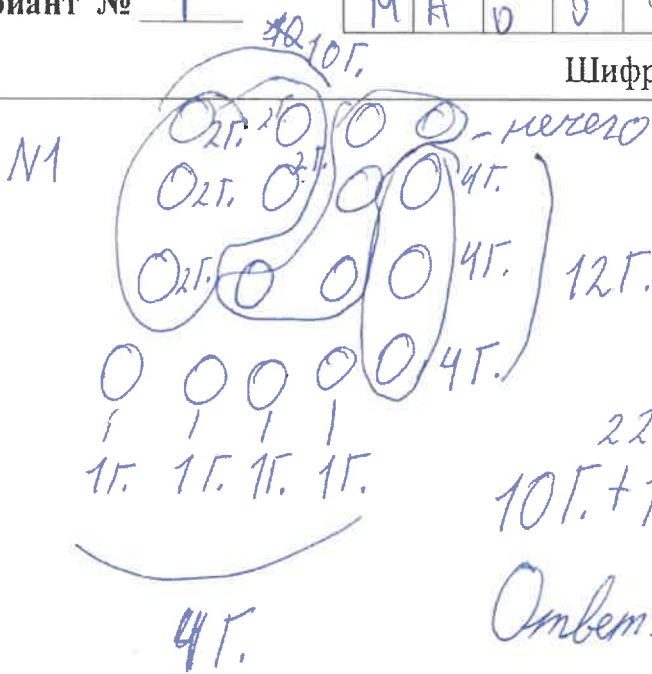 риант № 1
М А 0 0
Шифр
10г.
N1
2г. 2г. - нечего
2г. 2г. 4г.
2г. 4г. 12г.
4г.
1г. 1г. 1г. 1г.
22
10г. + 1
4г.
Ответ.